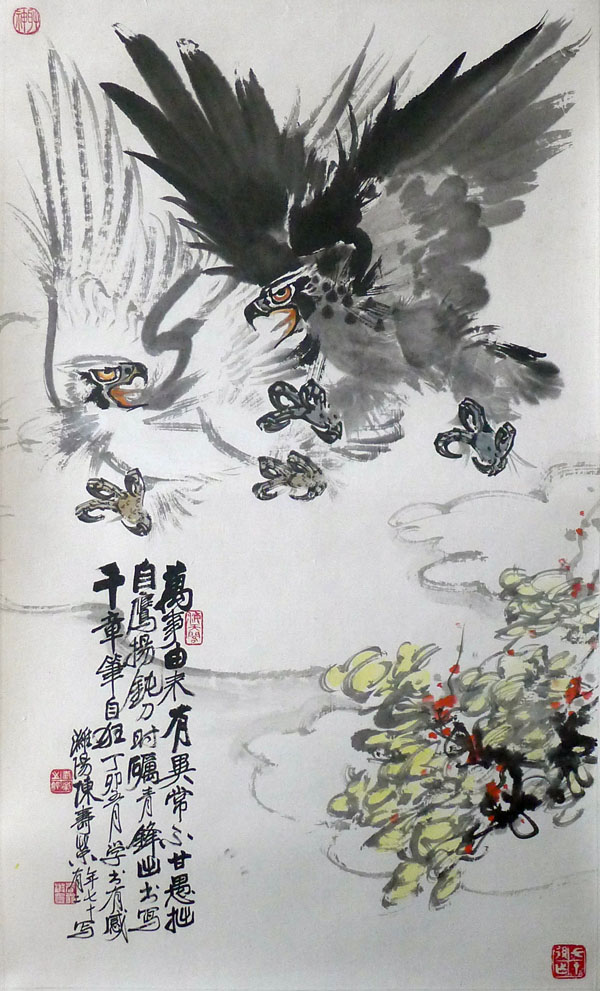 萬事由来有異常不甘愚拙
自鷹揚鈍刀时礪青鋒出书写
千章筆自狂丁卯五月学书有感
潍陽陳壽榮年七十有二写